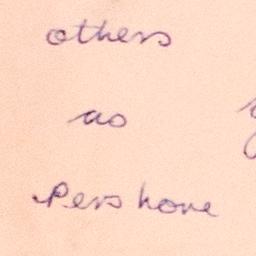 others
as
Pershore